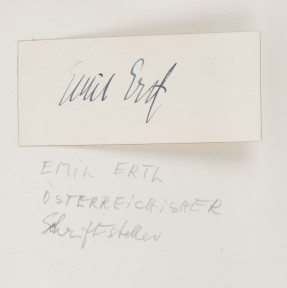 Emil Ertl
EMIL ERTL
ÖSTERREICHISHER
Schriftsteller